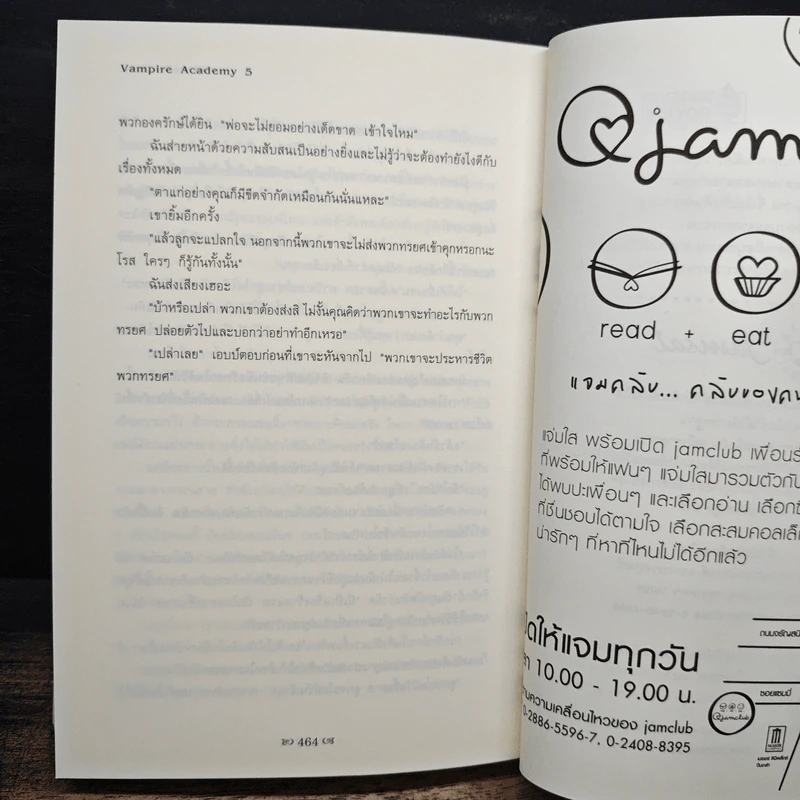 Vampire Academy 5
พวกองครักษ์ได้ยิน "พ่อจะไม่ยอมอย่างเด็ดขาด เข้าใจไหม"
ฉันส่ายหน้าด้วยความสับสนเป็นอย่างยิ่งและไม่รู้ว่าจะต้องทำยังไงดีกับ
เรื่องทั้งหมด
"ตาแก่อย่างคุณก็มีขีดจำกัดเหมือนกันนั่นแหละ"
เขายิ้มอีกครั้ง
"แล้วลูกจะแปลกใจ นอกจากนี้พวกเขาจะไม่ส่งพวกทรยศเข้าคุกหรอกนะ
โรส ใครๆ ก็รู้กันทั้งนั้น"
ฉันส่งเสียงเฮอะ
"บ้าหรือเปล่า พวกเขาต้องส่งสิ ไม่งั้นคุณคิดว่าพวกเขาจะทำอะไรกับพวก
ทรยศ ปล่อยตัวไปและบอกว่าอย่าทำอีกเหรอ"
"เปล่าเลย" เอบบ์ตอบก่อนที่เขาจะหันจากไป "พวกเขาจะประหารชีวิต
พวกทรยศ"
464
jam
read + eat
แจมคลับ... คลับของคน
แจ่มใส พร้อมเปิด jamclub เพื่อนรั
ที่พร้อมให้แฟนๆ แจ่มใสมารวมตัวกัน
ได้พบปะเพื่อนๆ และเลือกอ่าน เลือกซื
ที่ชื่นชอบได้ตามใจ เลือกสะสมคอลเล็
น่ารักๆ ที่หาที่ไหนไม่ได้อีกแล้ว
ให้แจมทุกวัน
10.00 - 19.00 น.
ความเคลื่อนไหวของ jamclub
0-2886-5596-7, 0-2408-8395
jamclub
ถนนจรัญสนิ
ซอยแซมมี่